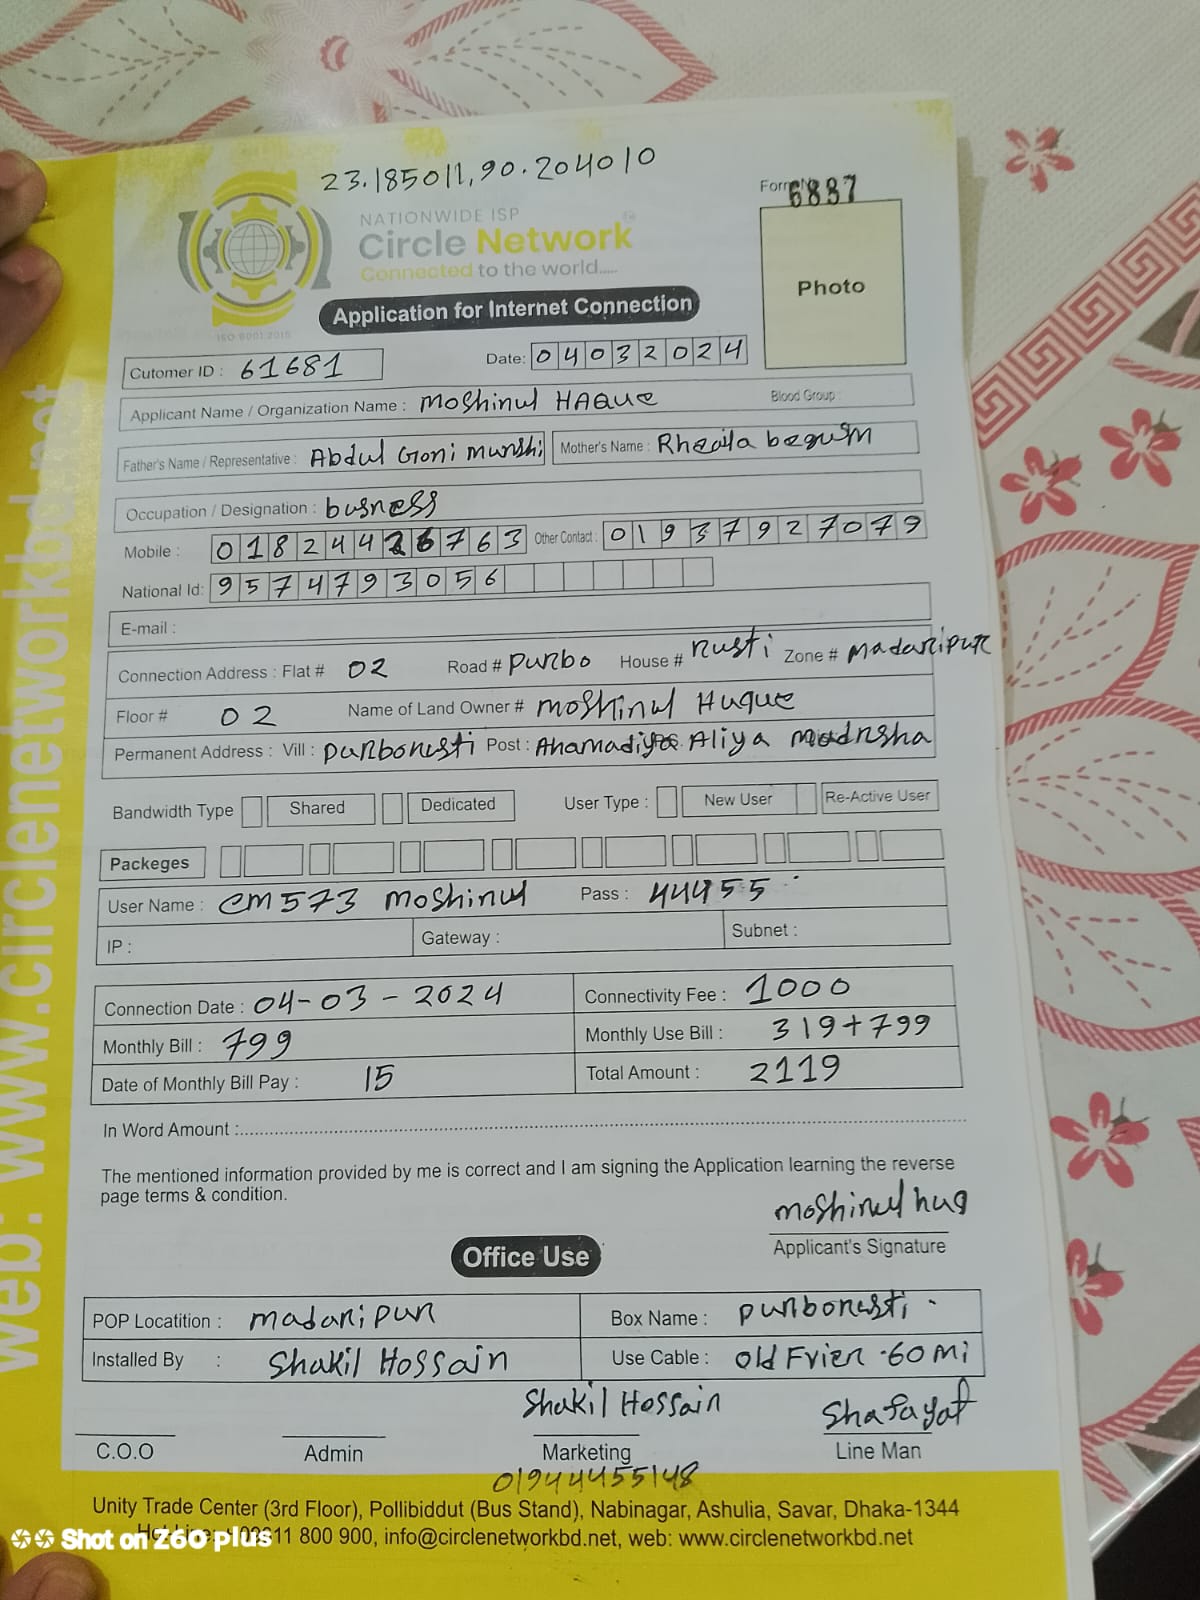 23.185011,90.204010
Form No 6837
NATIONWIDE ISP
Circle Network
Connected to the world.....
ISO 9001:2015
Application for Internet Connection
Photo
Cutomer ID : 61681
Date: 04032024
Applicant Name / Organization Name : Moshinul HAQue Blood Group :
Father's Name / Representative : Abdul Goni munshi Mother's Name : Rheaila begum
Occupation / Designation : busness
Mobile : 01824426763 Other Contact : 01937927079
National Id: 9574793056
E-mail :
Connection Address : Flat # 02 Road # purbo House # rusti Zone # madaripur
Floor # 02 Name of Land Owner # moshinul Huque
Permanent Address : Vill : purborusti Post : Ahamadiya Aliya madrsha
Bandwidth Type Shared Dedicated User Type : New User Re-Active User
Packeges
User Name : cm573 moshinul Pass : 44455
IP : Gateway : Subnet :
Connection Date : 04-03-2024 Connectivity Fee : 1000
Monthly Bill : 799 Monthly Use Bill : 319+799
Date of Monthly Bill Pay : 15 Total Amount : 2119
In Word Amount :
The mentioned information provided by me is correct and I am signing the Application learning the reverse
page terms & condition.
moshinul huq
Applicant's Signature
Office Use
POP Locatition : madaripur Box Name : purborusti
Installed By : Shakil Hossain Use Cable : Old Frier 60 mi
Shakil Hossain Shafayat
C.O.O Admin Marketing Line Man
01944455148
Unity Trade Center (3rd Floor), Pollibiddut (Bus Stand), Nabinagar, Ashulia, Savar, Dhaka-1344
11 800 900, info@circlenetworkbd.net, web: www.circlenetworkbd.net
Shot on Z60 plus
web: www.circlenetworkbd.net